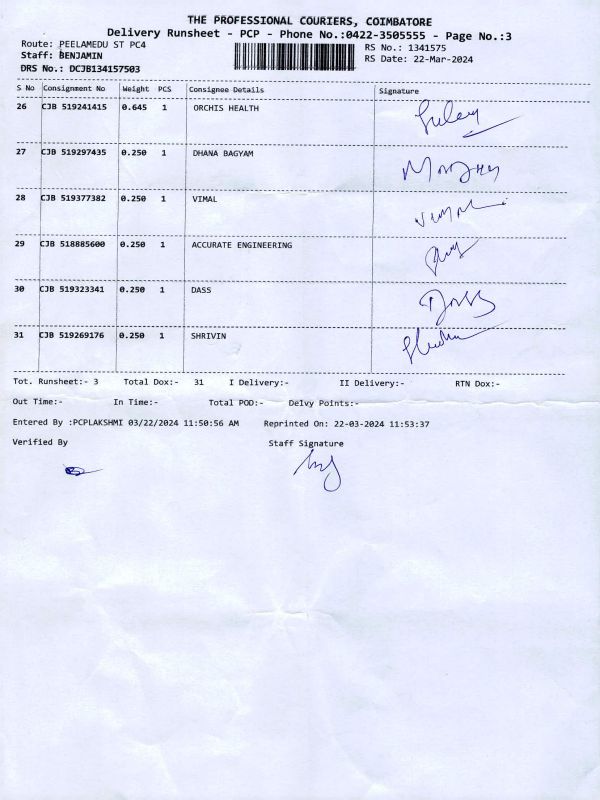 THE PROFESSIONAL COURIERS, COIMBATORE
Delivery Runsheet - PCP - Phone No.:0422-3505555 - Page No.:3
Route: PEELAMEDU ST PC4
RS No.: 1341575
Staff: BENJAMIN
RS Date: 22-Mar-2024
DRS No.: DCJB134157503
S No Consignment No Weight PCS Consignee Details Signature
26 CJB 519241415 0.645 1 ORCHIS HEALTH
27 CJB 519297435 0.250 1 DHANA BAGYAM
28 CJB 519377382 0.250 1 VIMAL
29 CJB 518885600 0.250 1 ACCURATE ENGINEERING
30 CJB 519323341 0.250 1 DASS
31 CJB 519269176 0.250 1 SHRIVIN
Tot. Runsheet:- 3 Total Dox:- 31 I Delivery:- II Delivery:- RTN Dox:-
Out Time:- In Time:- Total POD:- Delvy Points:-
Entered By :PCPLAKSHMI 03/22/2024 11:50:56 AM Reprinted On: 22-03-2024 11:53:37
Verified By Staff Signature